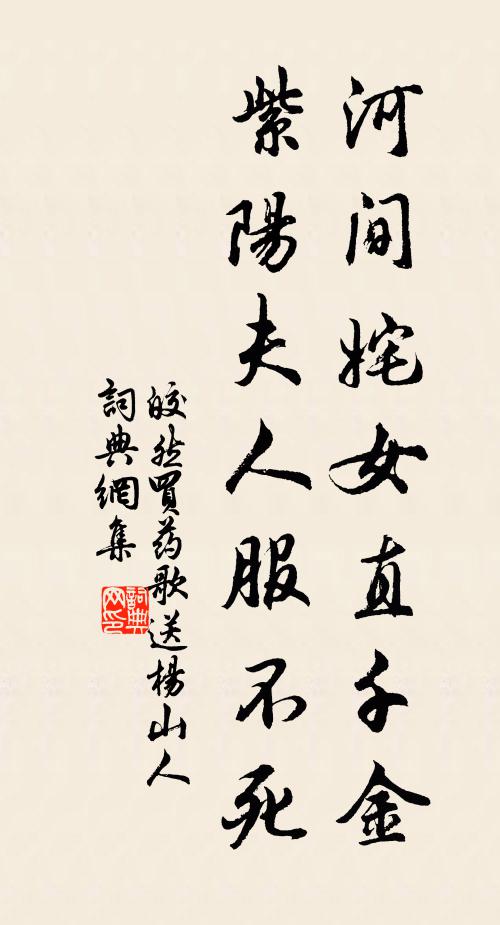 河间姹女直千金
紫陽夫人服不死
皎然買药歌送楊山人
詞典網集
詞典网印